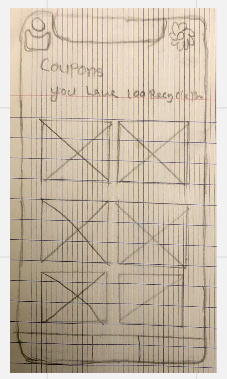 Coupons
you have 100 Recyclebs